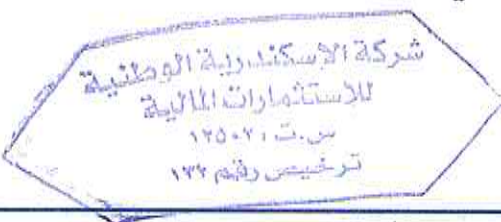 شركة الإسكندرية الوطنية
للاستثمارات المالية
س.ت: ١٢٥٠٧
ترخيص رقم ١٣٢